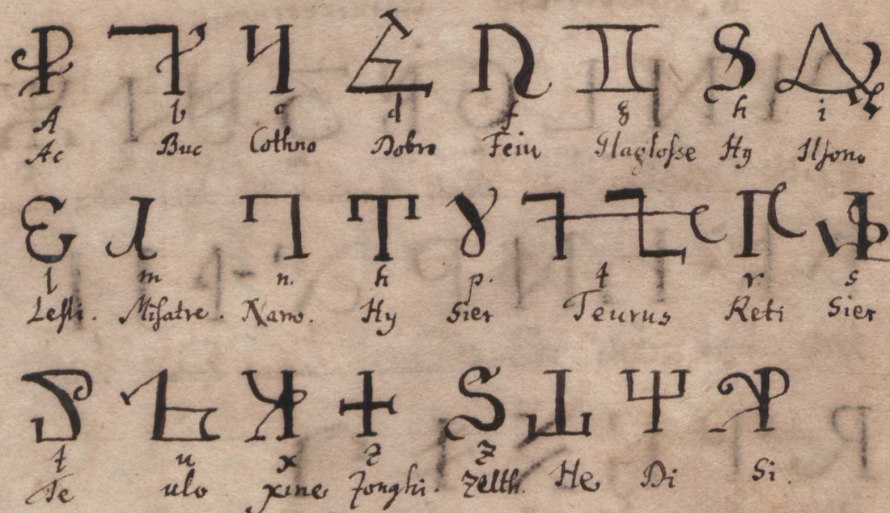 A b c d f g h i
Ac Buc Cothno Dobro Feiu Glagloſse Hy Iljono
l m n. h p. t r s
Leſti. Miſatre. Nano. Hy Sier Teurus Reti Sier
t u x z z
Te ulo xine Zonghi. Zelth. He Di Si.